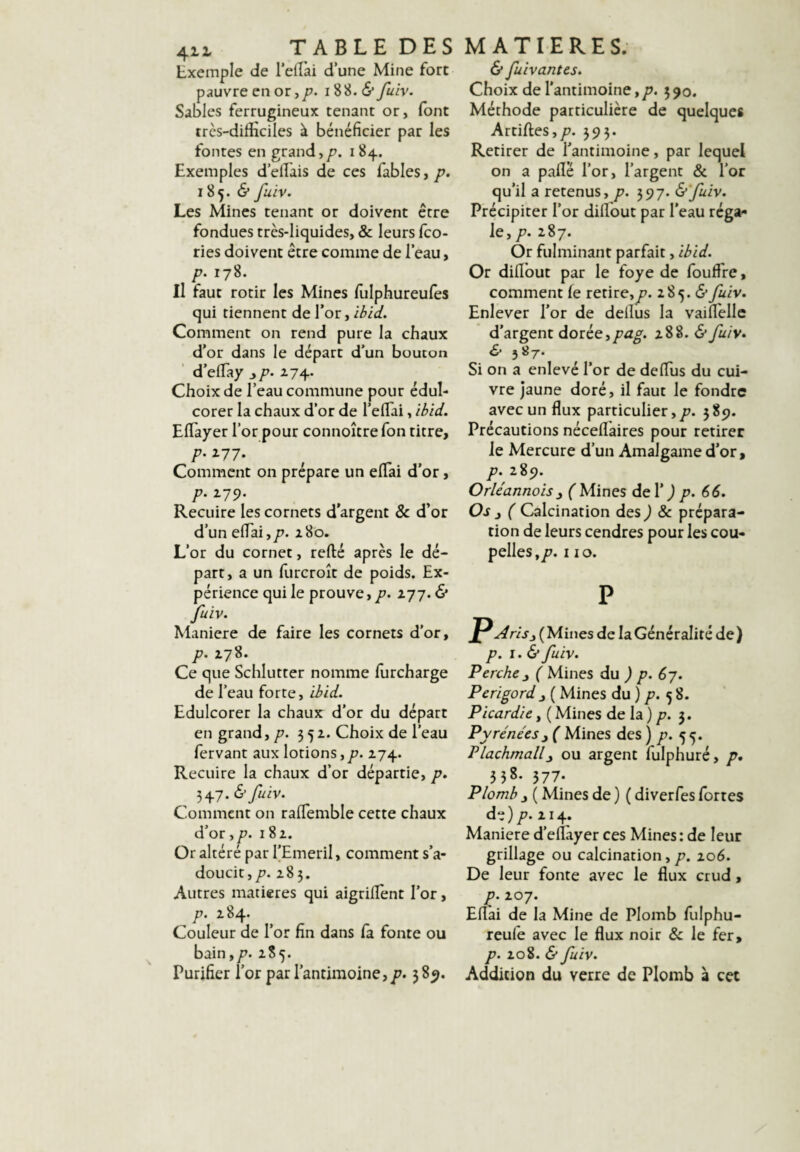 422 TABLE DES MATIERES.
Exemple de l'eſſai d'une Mine fort
pauvre en or, p. 188. & ſuiv.
Sables ferrugineux tenant or, ſont
très-difficiles à bénéficier par les
fontes en grand, p. 184.
Exemples d'eſſais de ces ſables, p.
185. & ſuiv.
Les Mines tenant or doivent être
fondues très-liquides, & leurs ſco-
ries doivent être comme de l'eau,
p. 178.
Il faut rotir les Mines ſulphureuſes
qui tiennent de l'or, ibid.
Comment on rend pure la chaux
d'or dans le départ d'un bouton
d'eſſay, p. 274.
Choix de l'eau commune pour édul-
corer la chaux d'or de l'eſſai, ibid.
Eſſayer l'or pour connoître ſon titre,
p. 277.
Comment on prépare un eſſai d'or,
p. 279.
Recuire les cornets d'argent & d'or
d'un eſſai, p. 280.
L'or du cornet, reſté après le dé-
part, a un ſurcroît de poids. Ex-
périence qui le prouve, p. 277. &
ſuiv.
Maniere de faire les cornets d'or,
p. 278.
Ce que Schlutter nomme ſurcharge
de l'eau forte, ibid.
Edulcorer la chaux d'or du départ
en grand, p. 352. Choix de l'eau
ſervant aux lotions, p. 274.
Recuire la chaux d'or départie, p.
347. & ſuiv.
Comment on raſſemble cette chaux
d'or, p. 182.
Or altéré par l'Emeril, comment s'a-
doucit, p. 283.
Autres matieres qui aigriſſent l'or,
p. 284.
Couleur de l'or fin dans ſa fonte ou
bain, p. 285.
Purifier l'or par l'antimoine, p. 389.
& ſuivantes.
Choix de l'antimoine, p. 390.
Méthode particulière de quelques
Artiſtes, p. 393.
Retirer de l'antimoine, par lequel
on a paſſé l'or, l'argent & l'or
qu'il a retenus, p. 397. & ſuiv.
Précipiter l'or diſſout par l'eau réga-
le, p. 287.
Or fulminant parfait, ibid.
Or diſſout par le foye de ſouffre,
comment ſe retire, p. 285. & ſuiv.
Enlever l'or de deſſus la vaiſſelle
d'argent dorée, pag. 288. & ſuiv.
& 387.
Si on a enlevé l'or de deſſus du cui-
vre jaune doré, il faut le fondre
avec un flux particulier, p. 389.
Précautions néceſſaires pour retirer
le Mercure d'un Amalgame d'or,
p. 289.
Orléannois, (Mines de l') p. 66.
Os, (Calcination des) & prépara-
tion de leurs cendres pour les cou-
pelles, p. 110.
P
PAris, (Mines de la Généralité de)
p. 1. & ſuiv.
Perche, (Mines du) p. 67.
Perigord, (Mines du) p. 58.
Picardie, (Mines de la) p. 3.
Pyrénées, (Mines des) p. 55.
Plachmall, ou argent ſulphuré, p.
338. 377.
Plomb, (Mines de) (diverſes ſortes
de) p. 214.
Maniere d'eſſayer ces Mines: de leur
grillage ou calcination, p. 206.
De leur fonte avec le flux crud,
p. 207.
Eſſai de la Mine de Plomb ſulphu-
reuſe avec le flux noir & le fer,
p. 208. & ſuiv.
Addition du verre de Plomb à cet